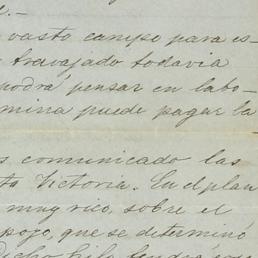 vasto campo para es-
travajado todavia
podra pensar en labo-
mina puede pagar la
comunicado las
Victoria. En el plan
muy rico, sobre el
pozo, que se determinó